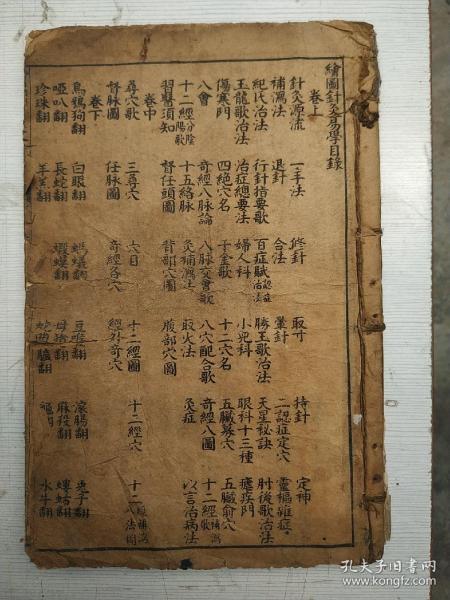 繪圖針灸易學目錄
卷上
針灸源流 一手法 修針 取寸 持針 定神
補瀉法 退針 合法 暈針 二認症定穴 靈樞雜症
紀氏治法 行針指要歌 百症賦 勝玉歌治法 天星秘訣 肘後歌治法
玉龍歌治法 治症總要法 婦人科 小兒科 眼科十三種 瘧疾門
傷寒門 四絕穴名 千金歌 十二穴名 五臟募穴 五臟俞穴
八會 奇經八脈論 八脈交會歌 八穴配合歌 奇經八圖 十二經
十二經分陰陽歌 十五絡脉 灸補瀉法 取火法 灸症 以言治病法
習醫須知 督任頭圖 背部穴圖 腹部穴圖
卷中
尋穴歌 三尋穴 六日 十二經圖 十二經穴 十二
督脉圖 任脉圖 奇經各穴 經外奇穴
卷下
烏鴉狗翻 白眼翻 螞蟥翻 豆喉翻 滾腸翻
啞叭翻 長蛇翻 母猪翻 麻役翻 螻蛄翻
珍珠翻 羊羔翻 水牛翻
孔夫子旧书网
www.kongfz.com